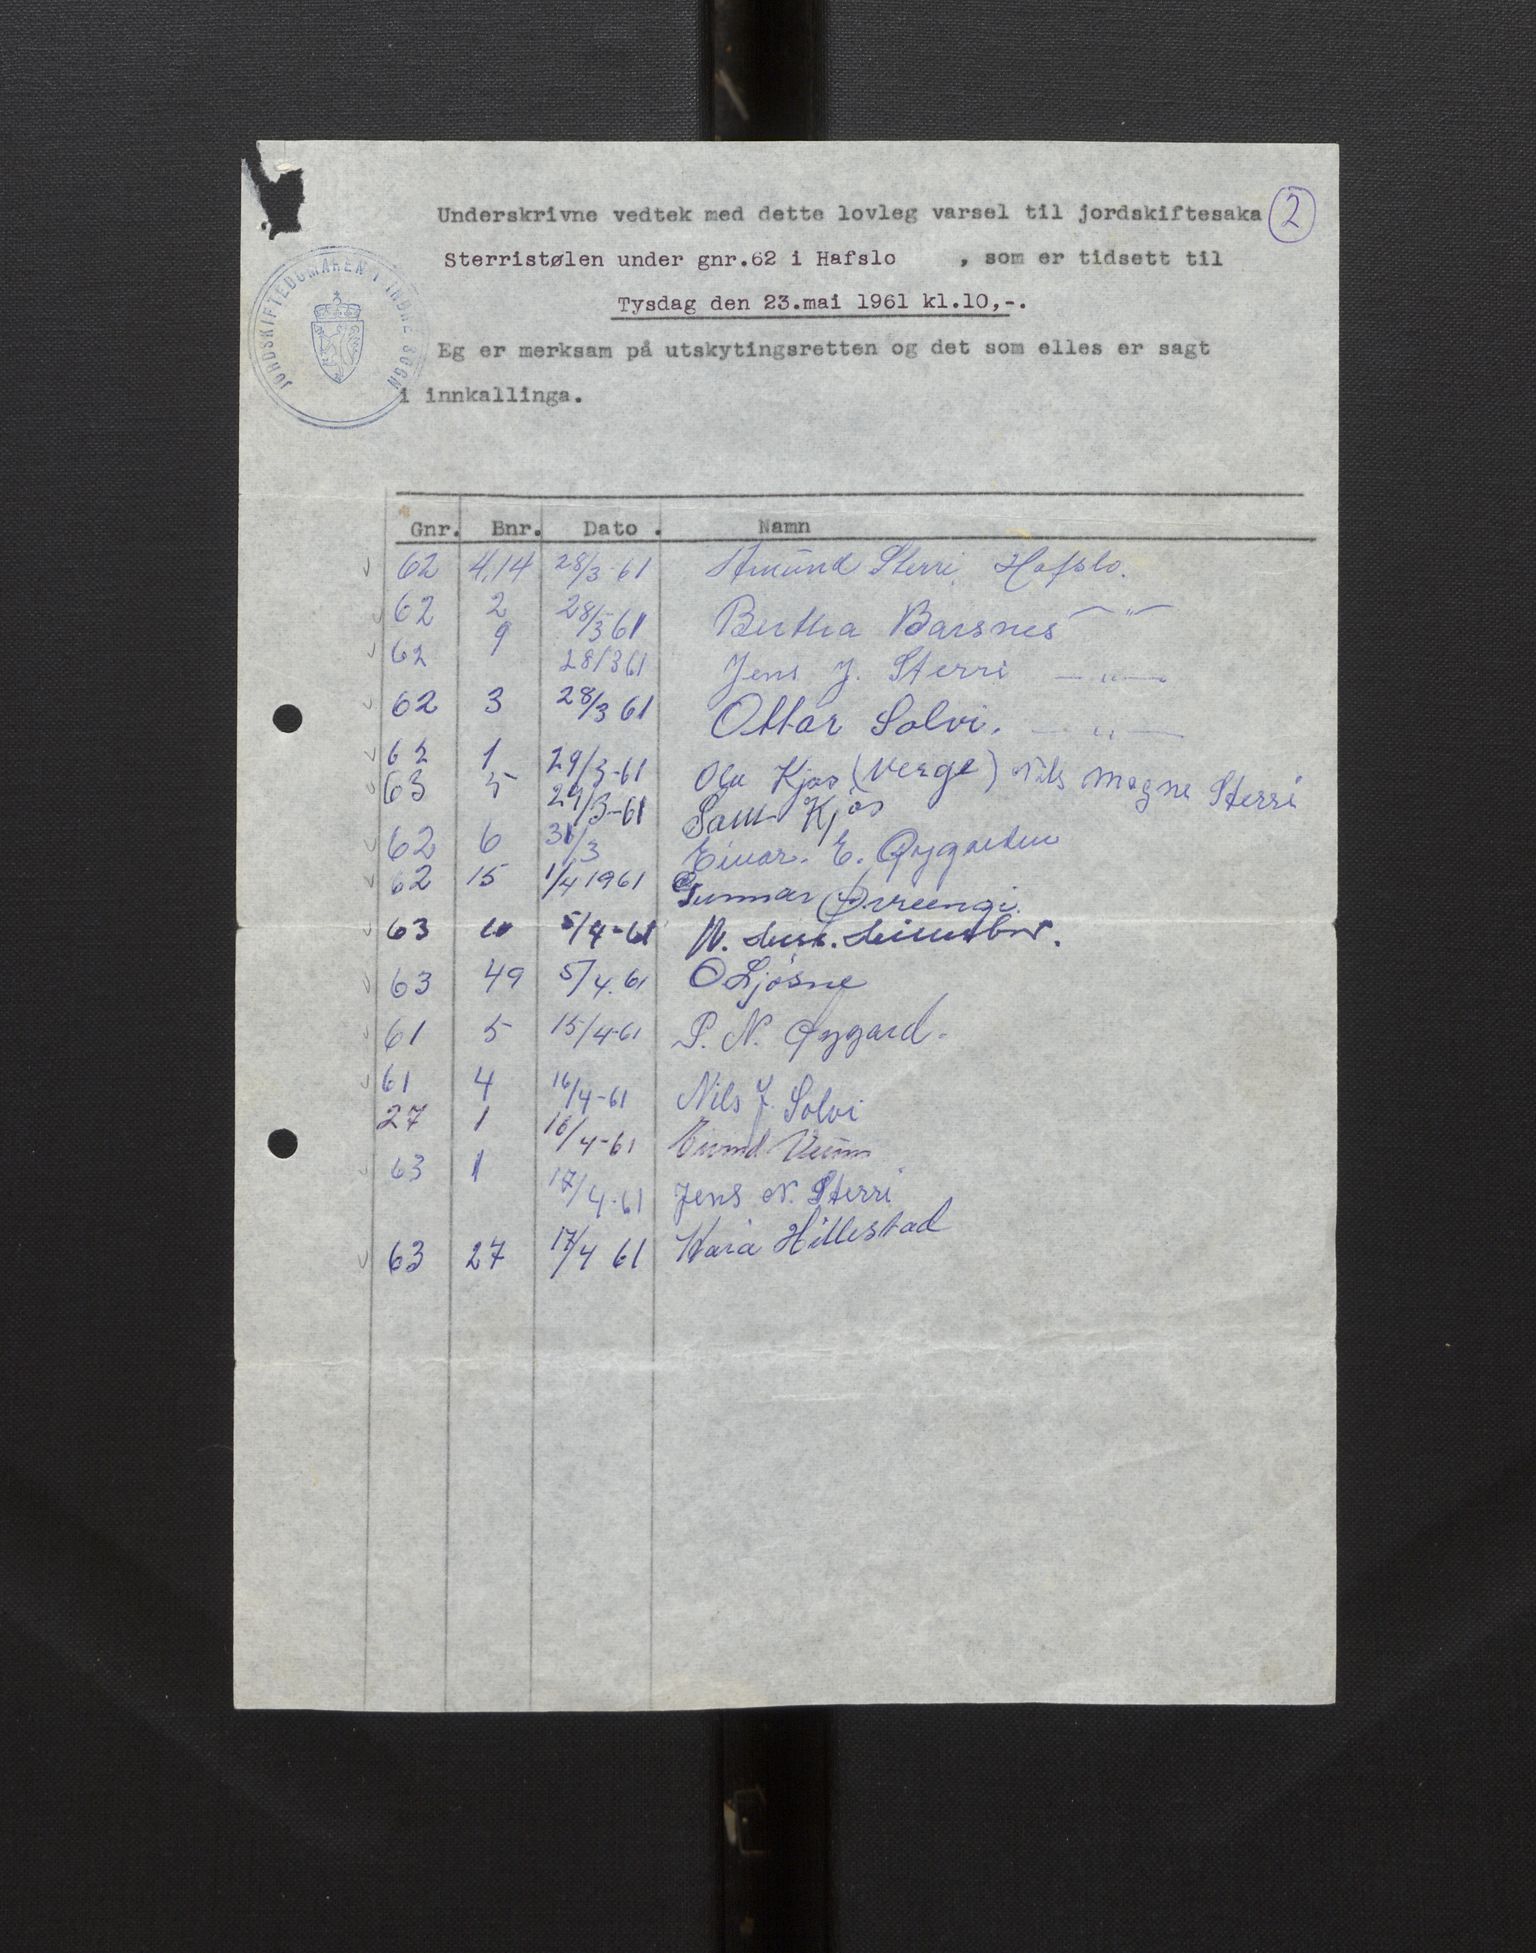 Underskrivne vedtek med dette lovleg varsel til jordskiftesaka 2
Sterristølen under gnr.62 i Hafslo , som er tidsett til
Tysdag den 23.mai 1961 kl.10,-.
JORDSKIFTEDOMAREN I INDRE SOGN
Eg er merksam på utskytingsretten og det som elles er sagt
i innkallinga.
Gnr. Bnr. Dato . Namn
62 4,14 28/3-61 Amund Sterri Hafslo.
62 2 28/3 61 Bertha Barsnes — " —
62 9 28/3 61 Jens J. Sterri — " —
62 3 28/3 61 Ottar Solvi. — " —
62 1 29/3-61 Ola Kjos (Verge) Nils Magne Sterri
63 5 29/3-61 Sam Kjos
62 6 31/3 Einar. E. Øygarden
62 15 1/4 1961 Gunnar Ørreengi.
63 5/4-61
63 49 5/4.61 O Ljøsne
61 5 15/4-61 P. N. Øygard.
61 4 16/4-61 Nils J. Solvi
27 1 16/4-61
63 1 17/4-61 Jens N. Sterri
63 27 17/4 61 Kara Hillestad